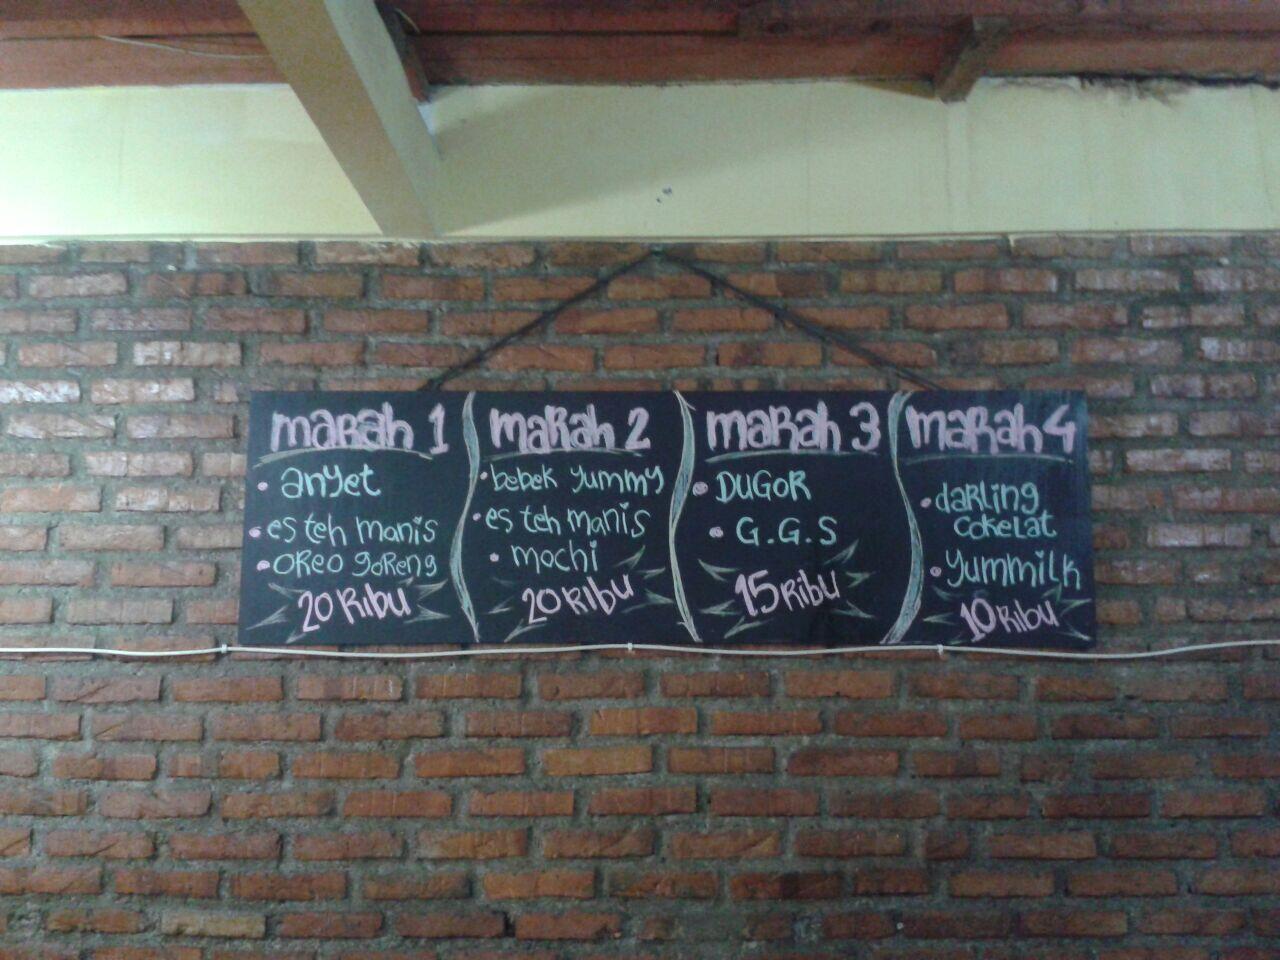 marah 1
• anyet
• es teh manis
• oreo goreng
20 Ribu
marah 2
• bebek yummy
• es teh manis
• mochi
20 Ribu
marah 3
• DUGOR
• G.G.S
15 Ribu
marah 4
• darling
cokelat
• yummilk
10 Ribu